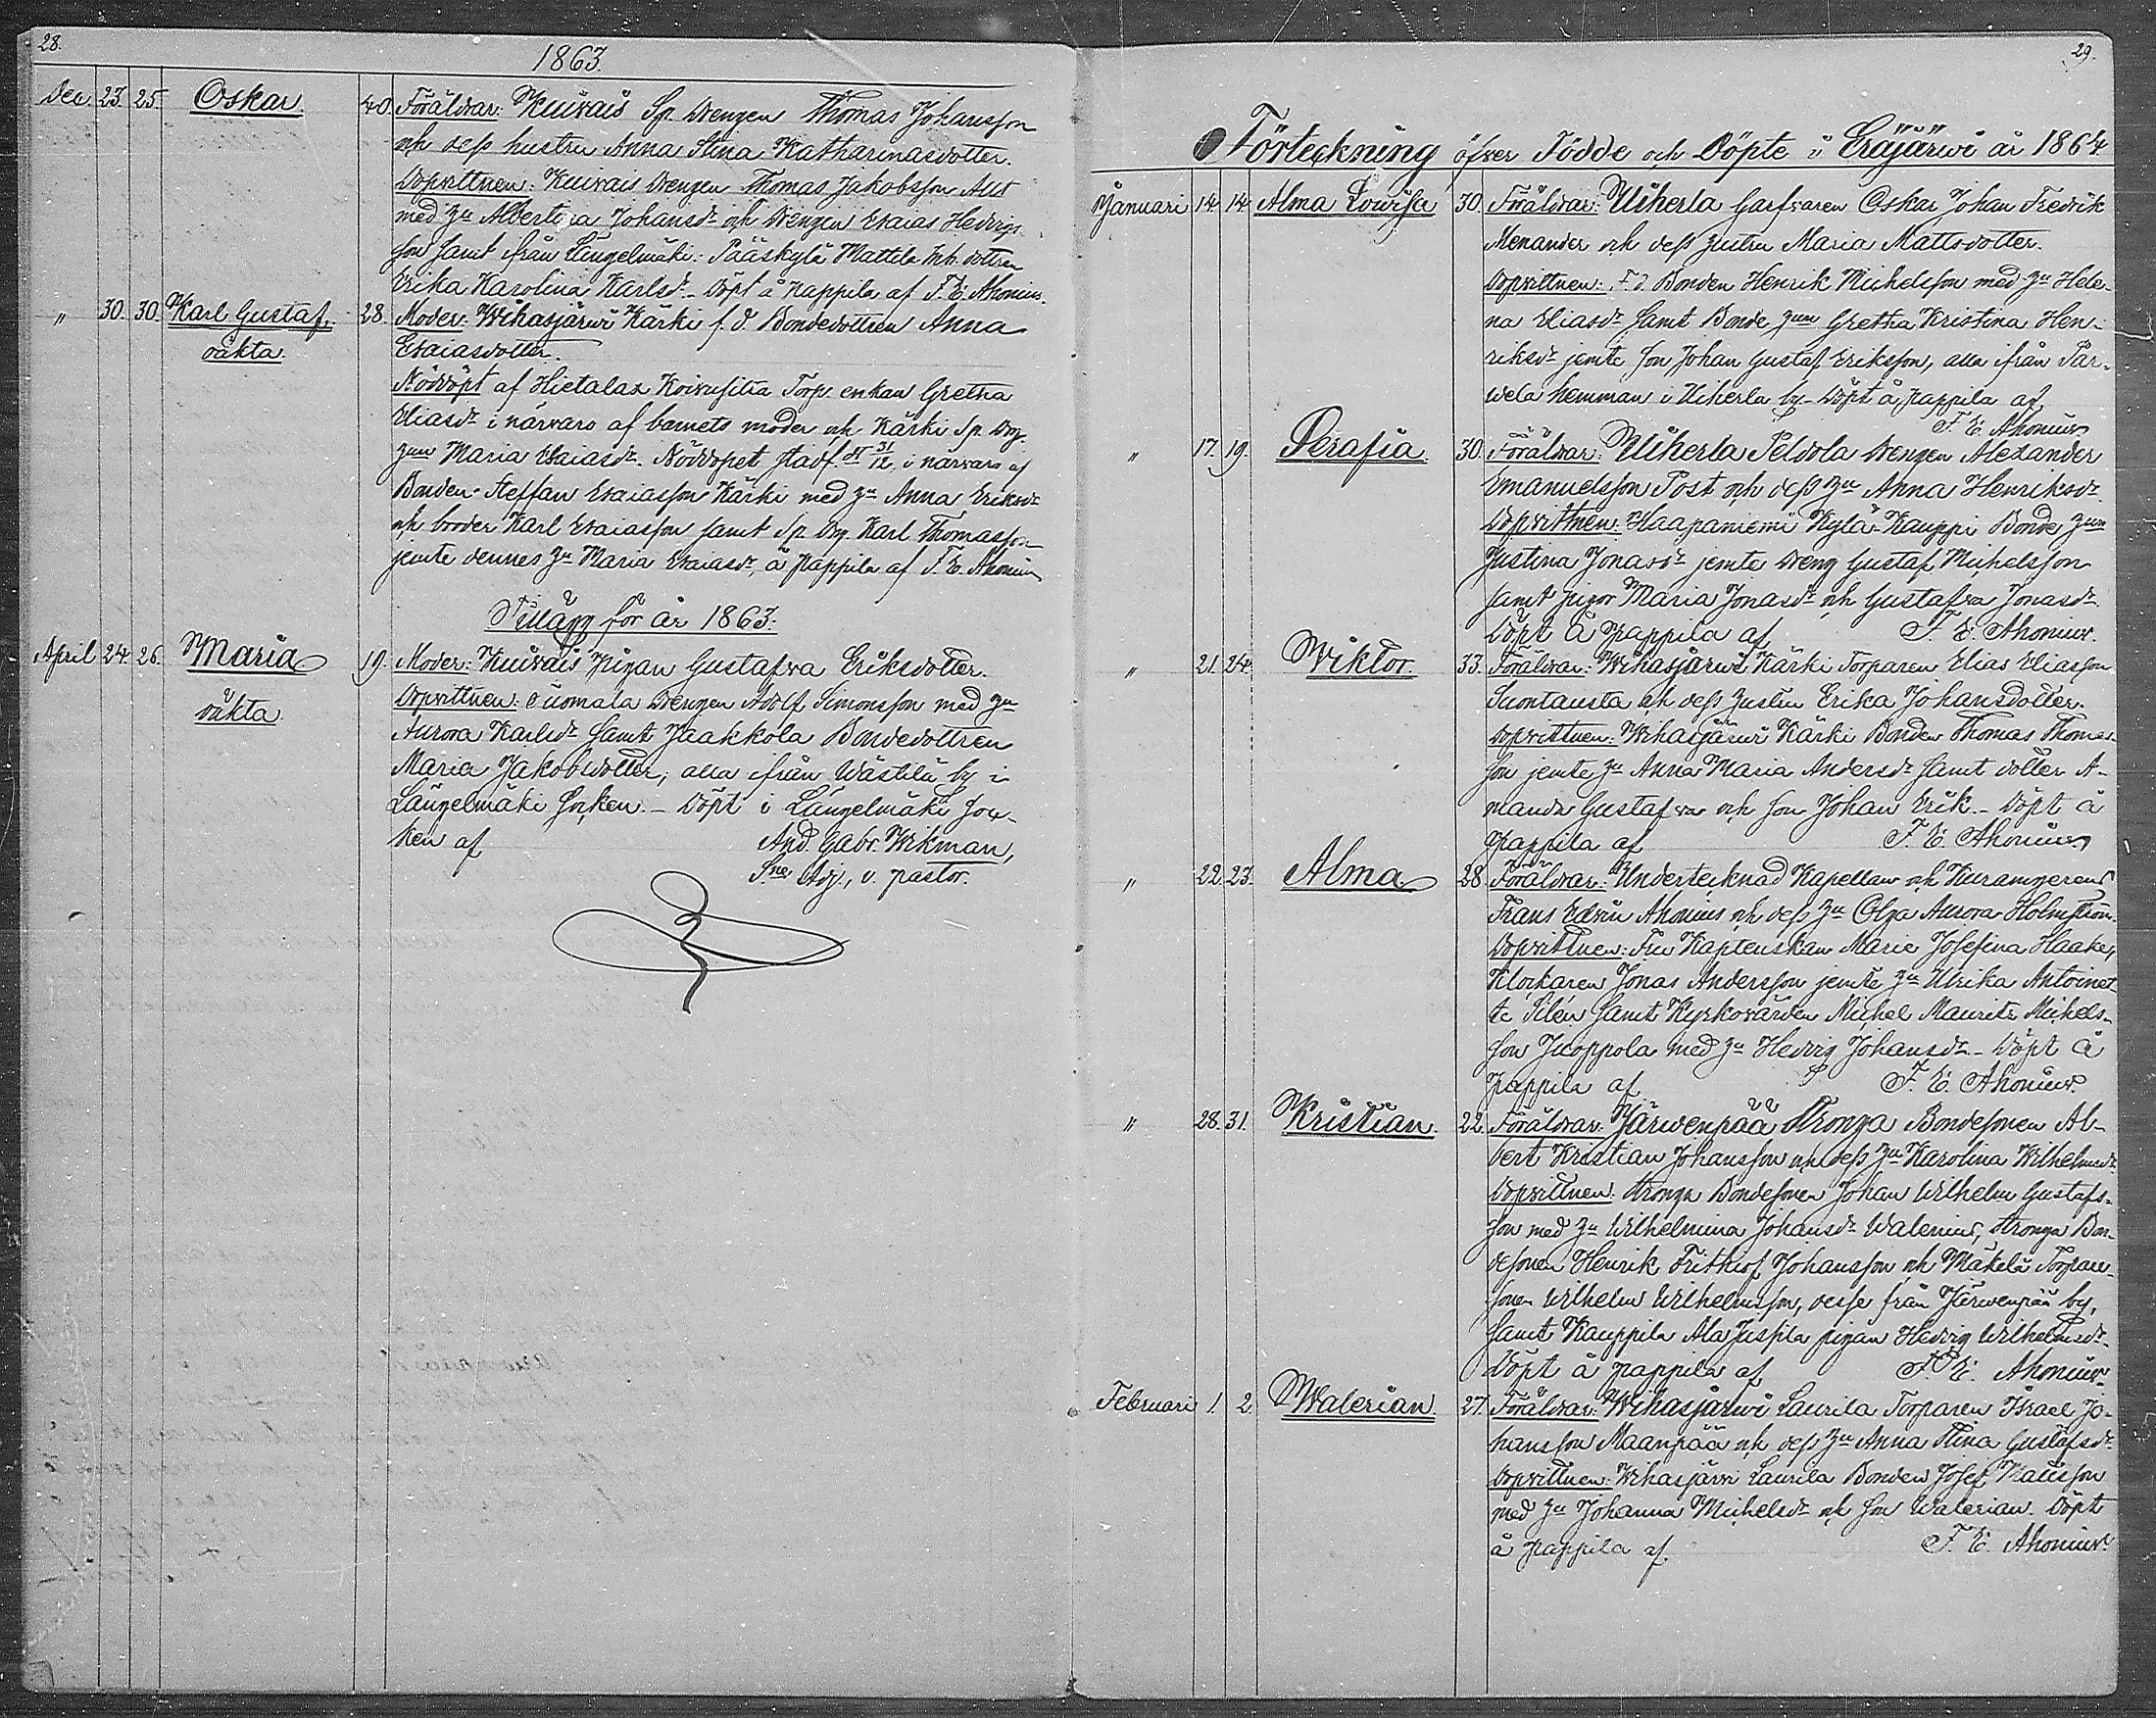 28.
1863.
Dec. 23. 25. Oskar 40. Föräldrar: Kuivais Sp. Drengen Thomas Johansson
och dess hustru Anna Stina Katharinasdotter.
Dopvittnen: Kuivais Drengen Thomas Jakobsson
med hu Albertina Johansdr och Drengen Esaias Hedvigs
son samt från Längelmäki: Pääskylä Mattila Inh. dottren
Erika Karolina Karlsdr - Döpt å Pappila af F. E. Ahonius.
" 30. 30. Karl Gustaf. 28. Moder: Wihasjärwi Kärki f. d. Bondedottren Anna
oäkta. Esaiasdotter.
Nöddöpt af Hietalax Koivusilta Torp. enkan Gretha
Eliasdr i närvaro af barnets moder och Kärki Sp. Drg.
hun Maria Esaiasdr. Nöddopet stadf. dt 31/12, i närvaro af
Bonden Steffan Esaiasson Kärki med hu Anna Eriksdr
och broder Karl Esaiasson samt Sp. Drg. Karl Thomasson
jemte dennes hu Maria Esaiasdr, å Pappila af F. E. Ahonius
Tillägg för år 1863:
April 24. 26. Maria 19. Moder: Kuivais Pigan Gustafva Eriksdotter.
oäkta. Dopvittnen: Suomala Drengen Adolf Simonsson med hu
Aurora Karlsdr samt Jaakkola Bondedottren
Maria Jakobsdotter, alla ifrån Wästilä by i
Längelmäki socken. - Döpt i Längelmäki soc-
ken af And. Gabr. Wikman,
Sne Adj., v. pastor.
29.
Förteckning öfver Födde och Döpte i Eräjärwi år 1864.
Januari 14. 14. Alma Lowisa 30. Föräldrar: Uiherla Garfvaren Oskar Johan Fredrik
Menander och dess hustru Maria Mattsdotter.
Dopvittnen: F. d. Bonden Henrik Michelsson med hu Hele-
na Eliasdr samt Bonde hun Gretha Kristina Hen-
riksdr jemte son Johan Gustaf Eriksson, alla ifrån Par-
wela hemman i Uiherla by - Döpt å Pappila af
F. E. Ahonius
" 17. 19. Serafia. 30. Föräldrar: Uiherla Peldola Drengen Alexander
Emanuelsson Post och dess hu Anna Henriksdr.
Dopvittnen: Haapaniemi Kylä-Kauppi Bonde hun
Justina Jonasdr jemte Dreng Gustaf Michelsson
samt pigor Maria Jonasdr och Gustafva Jonasdr.
Döpt å Pappila af F. E. Ahonius.
" 21. 24. Wiktor. 33. Föräldrar: Wihasjärwi Kärki Torparen Elias Eliasson
Suontausta och dess hustru Erika Johansdotter.
Dopvittnen: Wihasjärwi Kärki Bonden Thomas Thomas-
son jemte hu Anna Maria Andersdr samt dotter A-
manda Gustafva och son Johan Erik. - Döpt å
Pappila af F. E. Ahonius
" 22. 23. Alma 28. Föräldrar: Undertecknad Kapellan och Kuramgerens
Frans Edvin Ahonius och dess hu Olga Aurora Holmström.
Dopvittnen: Fru Kaptenskan Marie Josefina Haake,
Klockaren Jonas Andersson jemte hu Ulrika Antoinet-
te Silén samt Kyrkovärden Michel Mauritz Michels-
son Juoppola med hu Hedvig Johansdr. - Döpt å
Pappila af F. E. Ahonius.
" 28. 31. Kristian. 22. Föräldrar: Järwenpää Stronga Bondesonen Al-
bert Kristian Johansson och dess hu Karolina Wilhelmsdr.
Dopvittnen: Stronga Bondesonen Johan Wilhelm Gustafs-
son med hu Wilhelmina Johansdr Walenius, Stronga Bon-
desonen Henrik Frithiof Johansson och Mäkelä Torpare-
sonen Wilhelm Wilhelmsson, desse från Järwenpää by,
samt Kauppila Ala Jussila pigan Hedvig Wilhelmsdr.
Döpt å Pappila af F. E. Ahonius.
Februari 1. 2. Walerian. 27. Föräldrar: Wihasjärwi Laurila Torparen Israel Jo-
hansson Maanpää och dess hu Anna Stina Gustafsdr
Dopvittnen: Wihasjärwi Laurila Bonden Josef Mattsson
med hu Johanna Michelsdr och son Walerian. Döpt
å Pappila af F. E. Ahonius.